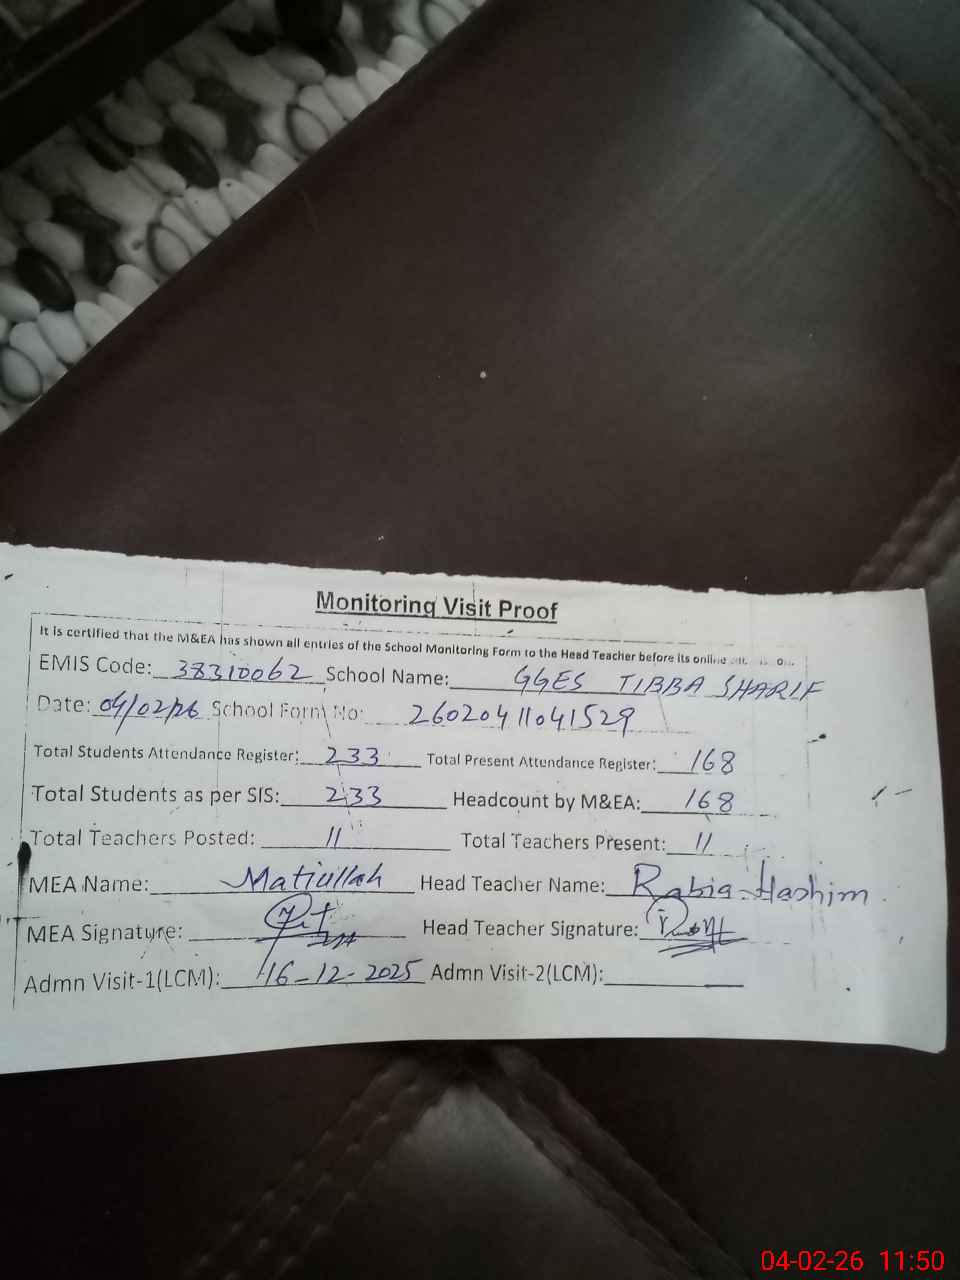 Monitoring Visit Proof
It is certified that the M&EA has shown all entries of the School Monitoring Form to the Head Teacher before its online
EMIS Code: 38310062 School Name: GGES TIBBA SHARIF
Date: 04/02/26 School Form No: 26020411041529
Total Students Attendance Register: 233 Total Present Attendance Register: 168
Total Students as per SIS: 233 Headcount by M&EA: 168
Total Teachers Posted: 11 Total Teachers Present: 11
MEA Name: Matiullah Head Teacher Name: Rabia Hashim
MEA Signature: Head Teacher Signature:
Admn Visit-1(LCM): 16-12-2025 Admn Visit-2(LCM):
04-02-26 11:50